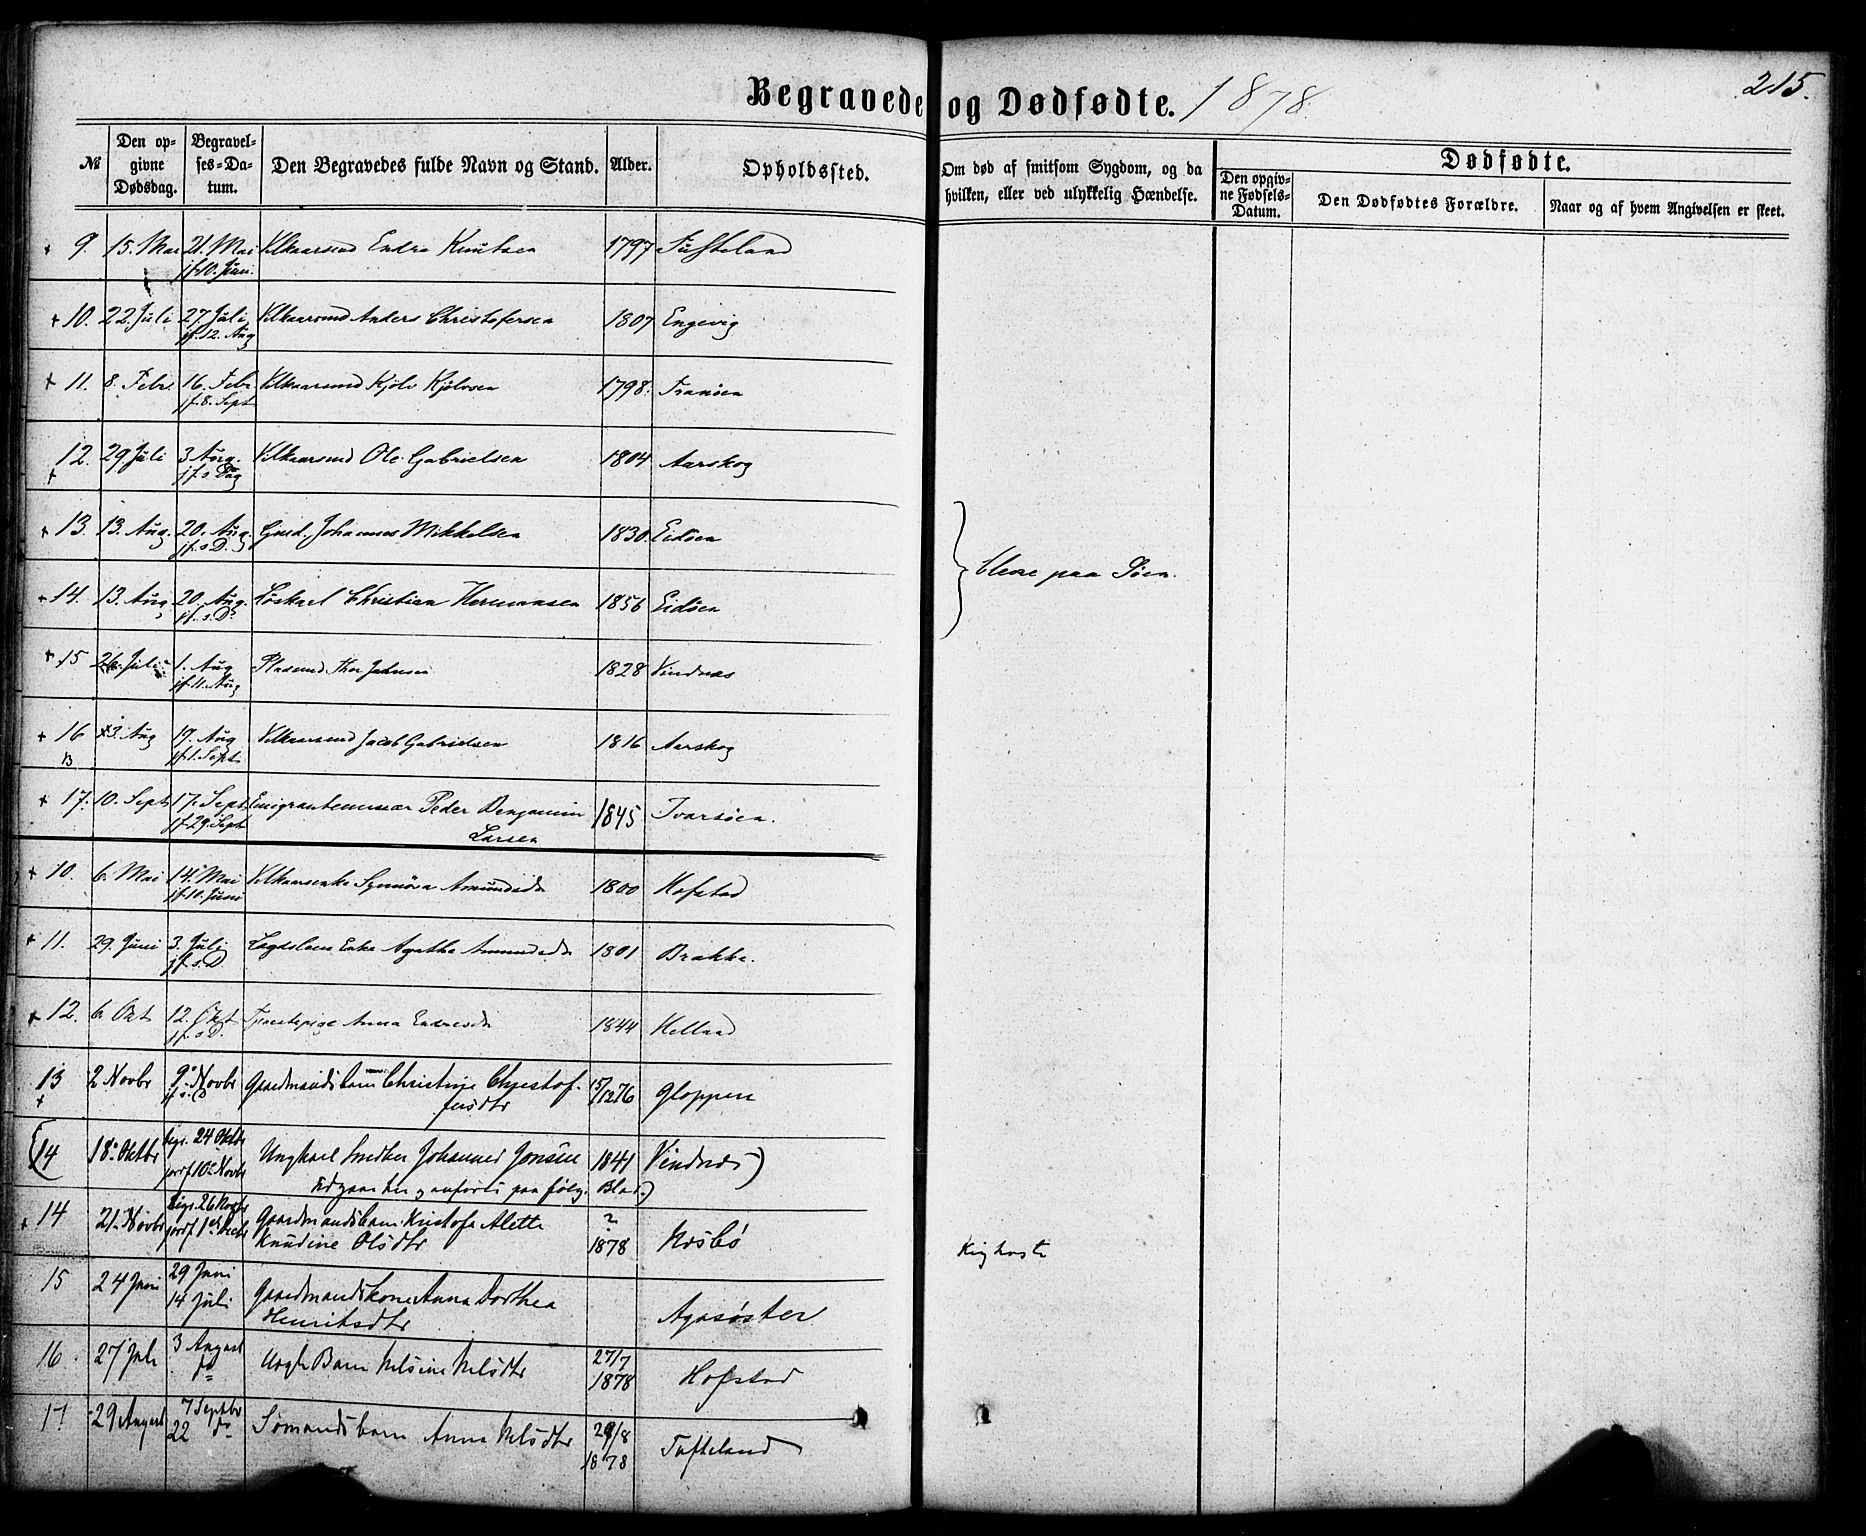 Begravede og Dødfødte. 1878.
215.
№
Den opgivne Dødsdag.
Begravelses-Datum.
Den Begravedes fulde Navn og Stand.
Alder.
Opholdssted.
Om død af smitsom Sygdom, og da hvilken, eller ved ulykkelig Hændelse.
Dødfødte.
Den opgivne Fødsels-Datum.
Den Dødfødtes Forældre.
Naar og af hvem Angivelsen er skeet.
9. 15. Mai 21. Mai Vilkaarsmd Endre Knutsen 1797
jf. 10. Juni.
10. 22. Juli 27 Juli Vilkaarsmd Anders Christofersen 1807 Engevig
jf. 12. Aug
11. 8. Febr. 16. Febr. Vilkaarsmd Kjøln Kjølnsen 1798. Tranøen
jf. 8. Sept
12. 29 Juli 3 Aug. Vilkaarsmd Ole Gabrielsen 1804 Aarskog
jf. s Dag
13. 13. Aug. 20. Aug. Gmd. Johannes Mikkelsen 1830. Eidøen
jf. s D.
Bleve paa Søen.
14. 13. Aug. 20. Aug. Løskarl Christian Hermansen 1856 Eidøen
jf. s. D.
15 26. Juli 1. Aug Pladsmd Thor Johnsen 1828 Vindnæs
jf. 11. Aug
16 3. Aug 17. Aug Vilkaarsmd Jacob Gabrielsen 1816 Aarskog
13 jf. 1. Sept
17. 10. Sept 17. Sept Peder Benjamin 1845 Ivarsøen.
jf. 29. Sept Larsen
10. 6. Mai 14. Mai Vilkaarsenke Synnøva Amundsdr 1800 Hofstad
jf. 10. Juni
11. 29. Juni 3. Juli Lægdslem Enke Agatha Amundsdr 1801 Brakke.
jf. s. D.
12. 6. Okt 12. Okt Tjenestepige Anna Endresdr 1844 Helland
jf. s D.
13 2 Novbr 9. Novbr Gaardmandsbarn Christine Christof- 15/12 76 Gloppen
jf. s. D fersdtr
(14 18. Oktbr begr. 24 Oktbr Ungkarl Johannes Jonsen 1841 Vindnæs)
jordf 10. Novbr Udgaar her, anførts paa følg. Blad.)
14 21. Novbr Begr. 26 Novbr Gaardmandsbarn Kristofa Alette ? Næsbø
jordf 1. Decbr Knudine Olsdtr 1878
Kighoste
15 24 Juni 29 Juni Gaardmandskone Anna Dorthea Agasøster
14 Juli Henriksdtr
16 27 Juli 3 August Uægte Barn Nilsine Nilsdtr 27/7 Hofstad
do 1878
17 29 August 7 Septbr Sømandsbarn Anna Nilsdtr 29/8 Tufteland
22 do 1878